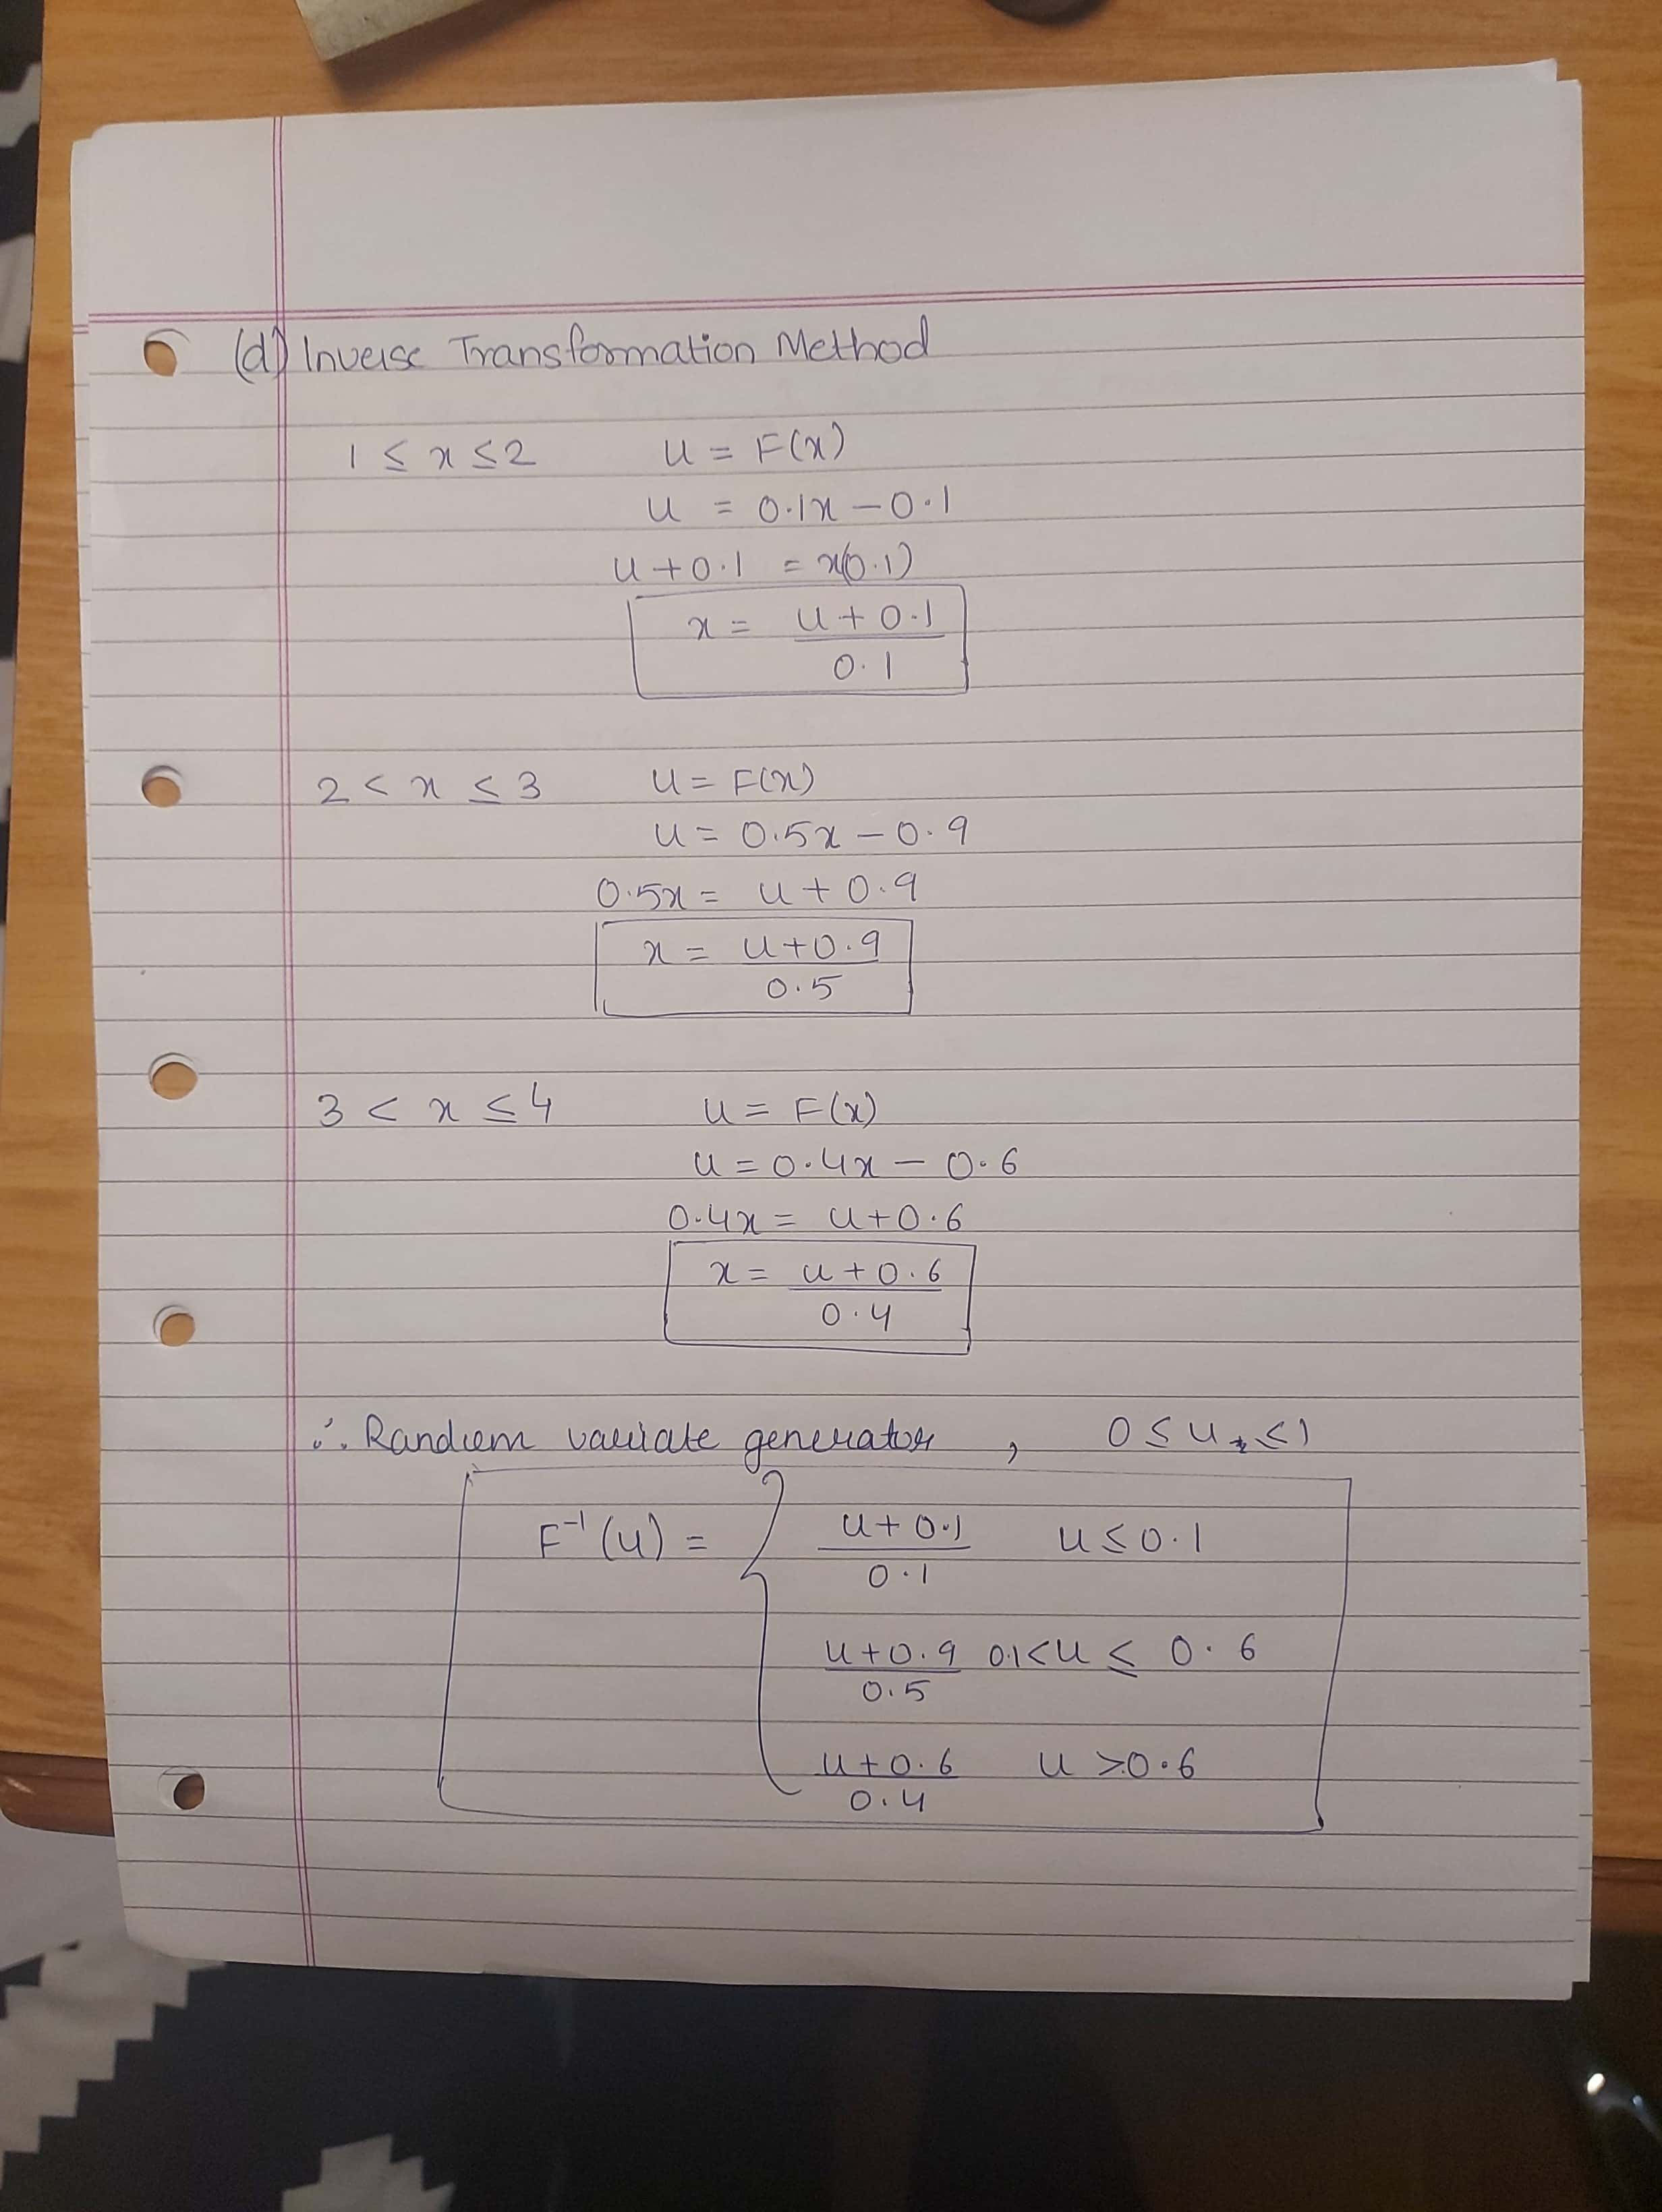 (d) Inverse Transformation Method
1 ≤ x ≤ 2 u = F(x)
u = 0.1x − 0.1
u + 0.1 = x(0.1)
x = u + 0.1
0.1
2 < x ≤ 3 u = F(x)
u = 0.5x − 0.9
0.5x = u + 0.9
x = u + 0.9
0.5
3 < x ≤ 4 u = F(x)
u = 0.4x − 0.6
0.4x = u + 0.6
x = u + 0.6
0.4
∴ Random variate generator, 0 ≤ u ≤ 1
F⁻¹(u) = { u + 0.1 u ≤ 0.1
0.1
u + 0.9 0.1 < u ≤ 0.6
0.5
u + 0.6 u > 0.6
0.4